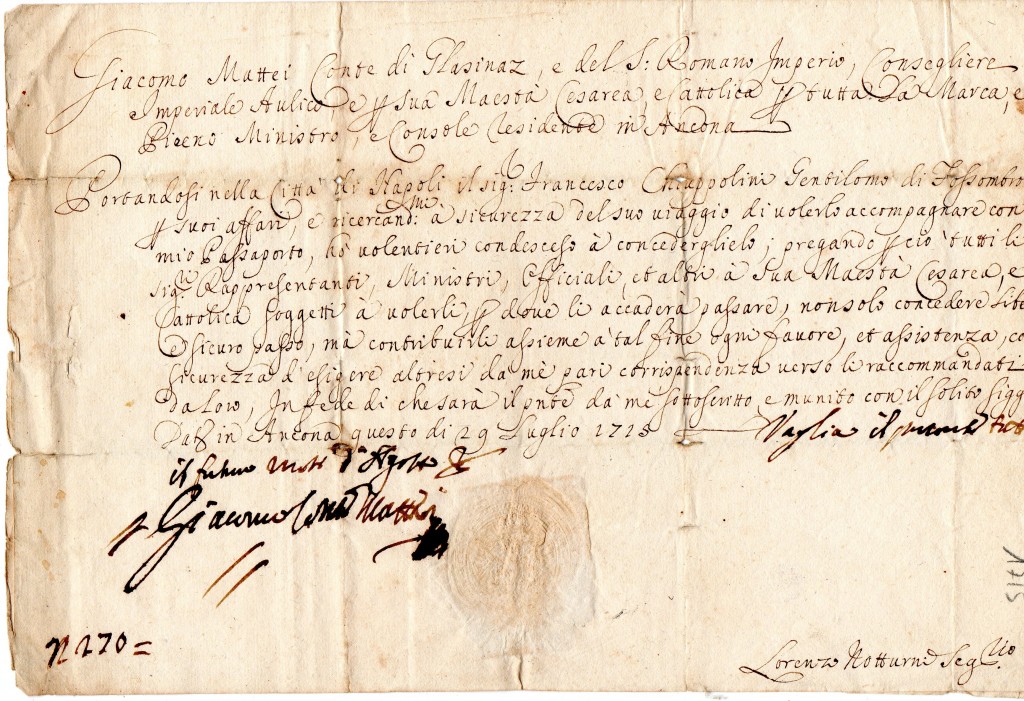 Giacomo Mattei Conte di Glasinaz, e del S: Romano Imperio, Consegliere
Imperiale Aulico, e p sua Maestà Cesarea, e Cattolica p tutta La Marca, e
Piceno Ministro, e Console Residente in Ancona
Portandosi nella Città di Napoli il sig:r Francesco Chiappolini Gentilomo di Fossombro
p suoi affari, e ricercandomi à sicurezza del suo viaggio di volerlo accompagnare con
mio Passaporto, hò volentieri condesceso à concederglielo; pregando p ciò tutti li
sig:ri Rappresentanti, Ministri, Officiali, et altri à Sua Maestà Cesarea, e
Cattolica soggetti à volerli, p dove li accaderà passare, non solo concedere libe
e sicuro passo, mà contribuirle assieme à tal fine ogni favore, et assistenza, co
sicurezza d'esigere altresi da mè pari corrispondenza verso li raccommandati
da Loro, In fede di che sarà il pnte da mè sottoscritto e munito con il solito sigg
Dat in Ancona questo di 29 Luglio 1715 Vaglia il tutt
il futuro mese d'Agosto
Giacomo Conte Mattei
N 270 =
1715
Lorenzo Notturni Seg:rio